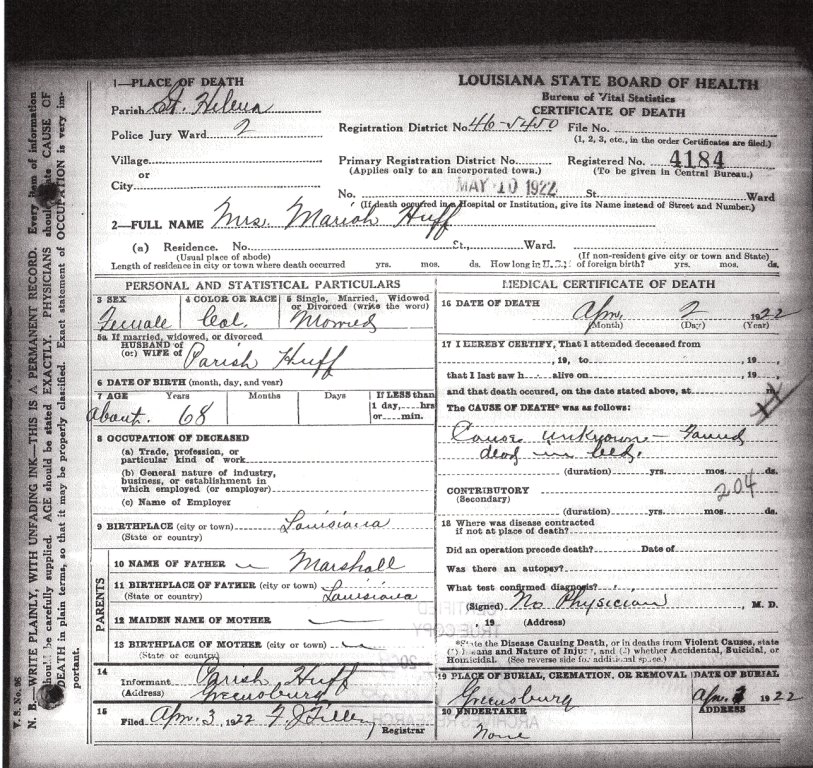 V. S. No. 96
N. B.—WRITE PLAINLY, WITH UNFADING INK—THIS IS A PERMANENT RECORD. Every item of information
should be carefully supplied. AGE should be stated EXACTLY. PHYSICIANS should state CAUSE OF
DEATH in plain terms, so that it may be properly classified. Exact statement of OCCUPATION is very im-
portant.
1—PLACE OF DEATH
Parish St. Helena
Police Jury Ward 2
Village
or
City
LOUISIANA STATE BOARD OF HEALTH
Bureau of Vital Statistics
CERTIFICATE OF DEATH
Registration District No. 46-5450 File No.
(1, 2, 3, etc., in the order Certificates are filed.)
Primary Registration District No. Registered No. 4184
(Applies only to an incorporated town.) (To be given in Central Bureau.)
MAY 10 1922
No. St. Ward
(If death occurred in a Hospital or Institution, give its Name instead of Street and Number.)
2—FULL NAME Mrs. Mariah Huff
(a) Residence. No. St., Ward.
(Usual place of abode) (If non-resident give city or town and State)
Length of residence in city or town where death occurred yrs. mos. ds. How long in U. S., if of foreign birth? yrs. mos. ds.
PERSONAL AND STATISTICAL PARTICULARS
3 SEX 4 COLOR OR RACE 5 Single, Married, Widowed
or Divorced (write the word)
Female Col. Married
5a If married, widowed, or divorced
HUSBAND of
(or) WIFE of Parish Huff
6 DATE OF BIRTH (month, day, and year)
7 AGE Years Months Days If LESS than
1 day, hrs
or min.
about 68
8 OCCUPATION OF DECEASED
(a) Trade, profession, or
particular kind of work
(b) General nature of industry,
business, or establishment in
which employed (or employer)
(c) Name of Employer
9 BIRTHPLACE (city or town) Louisiana
(State or country)
PARENTS
10 NAME OF FATHER Marshall
11 BIRTHPLACE OF FATHER (city or town)
(State or country) Louisiana
12 MAIDEN NAME OF MOTHER
13 BIRTHPLACE OF MOTHER (city or town)
(State or country)
14
Informant Parish Huff
(Address) Greensburg
15
Filed Apr. 3, 1922
Registrar
MEDICAL CERTIFICATE OF DEATH
16 DATE OF DEATH Apr. 2 1922
(Month) (Day) (Year)
17 I HEREBY CERTIFY, That I attended deceased from
, 19 , to , 19 ,
that I last saw h alive on , 19 ,
and that death occured, on the date stated above, at m.
The CAUSE OF DEATH* was as follows:
Cause unknown - Found
dead in bed.
(duration) yrs. mos. ds.
204
CONTRIBUTORY
(Secondary)
(duration) yrs. mos. ds.
18 Where was disease contracted
if not at place of death?
Did an operation precede death? Date of
Was there an autopsy?
What test confirmed diagnosis?
(Signed) No Physician M. D.
, 19 (Address)
*State the Disease Causing Death, or in deaths from Violent Causes, state
(1) Means and Nature of Injury, and (2) whether Accidental, Suicidal, or
Homicidal. (See reverse side for additional space.)
19 PLACE OF BURIAL, CREMATION, OR REMOVAL DATE OF BURIAL
Greensburg Apr. 3 1922
20 UNDERTAKER ADDRESS
None